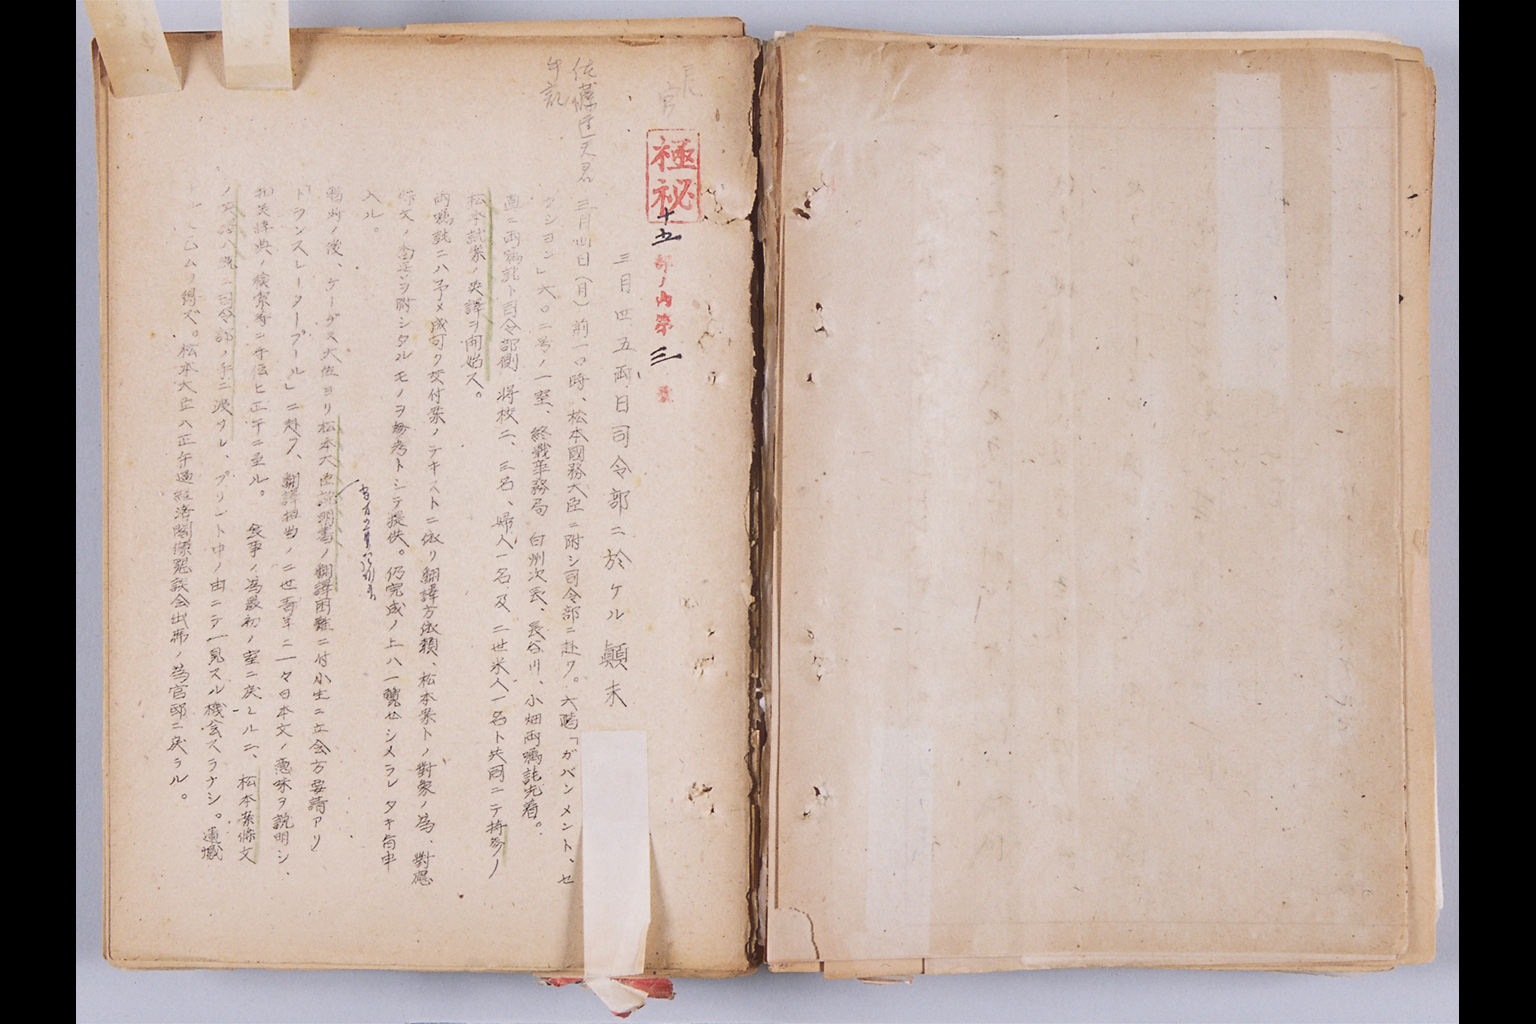 極秘
十五部ノ内第三號
三月四、五両日司令部ニ於ケル顛末
佐藤達夫君
手記
三月四日（月）前一〇時、松本國務大臣ニ附シ司令部ニ赴ク。六階「ガバンメント、セ
クション」六〇二号ノ一室、終戦事務局 白州次長、長谷川、小畑両嘱託先着。
直ニ両嘱託ト司令部側 将校二、三名、婦人一名及 二世米人一名ト共同ニテ持参ノ
松本試案ノ英譯ヲ開始ス。
両嘱託ニハ予メ成可ク交付案ノテキストニ依リ翻譯方依頼、松本案トノ對象ノ為、對應
條文ノ ヲ附シタルモノヲ参考トシテ提供。仍完成ノ上ハ一覽セシメラレタキ旨申
入ル。
ノ後、ケーヂス大佐ヨリ松本大臣説明書ノ翻譯困難ニ付小生ニ立会方要請アリ
「トランスレータープール」ニ赴ク、翻譯担当ノ二世青年ニ一々日本文ノ意味ヲ説明シ、
和英辞典ノ検索等ニ手伝ヒ正午ニ至ル。 食事ノ為最初ノ室ニ戻レルニ、松本案條文
ノ英譯ハ既ニ司令部ノ手ニ渡サレ、プリント中ノ由ニテ一見スル機会スラナシ。遺憾
ヤムヲ得ズ。松本大臣ハ正午過経済閣僚懇談会出席ノ為官邸ニ戻ラル。